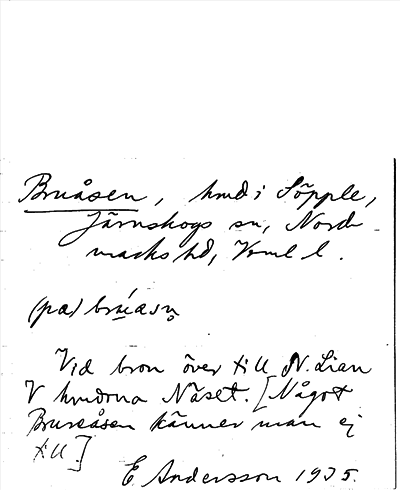 Bruåsen, hmd i Söpple,
Järnskogs sn, Nord-
marks hd, Vrml l.
(pa) brúasn̥
Vid bron över till N. Lian
V hmdrna Näset. [Något
Bruseåsen känner man ej
till.]
E. Andersson 1935.